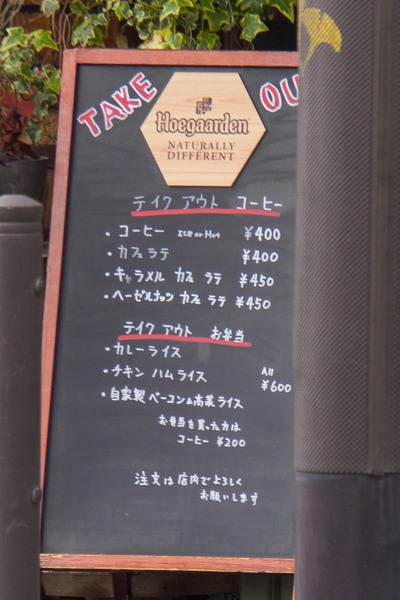 TAKE OU
Hoegaarden
NATURALLY
DIFFERENT
テイクアウト コーヒー
・コーヒー ICE or Hot ¥400
・カフェラテ ¥400
・キャラメル カフェ ラテ ¥450
・ヘーゼルナッツ カフェ ラテ ¥450
テイクアウト お弁当
・カレーライス
・チキン ハムライス
All
¥600
・自家製 ベーコン&高菜ライス
お弁当を買った方は
コーヒー ¥200
注文は店内でよろしく
お願いします